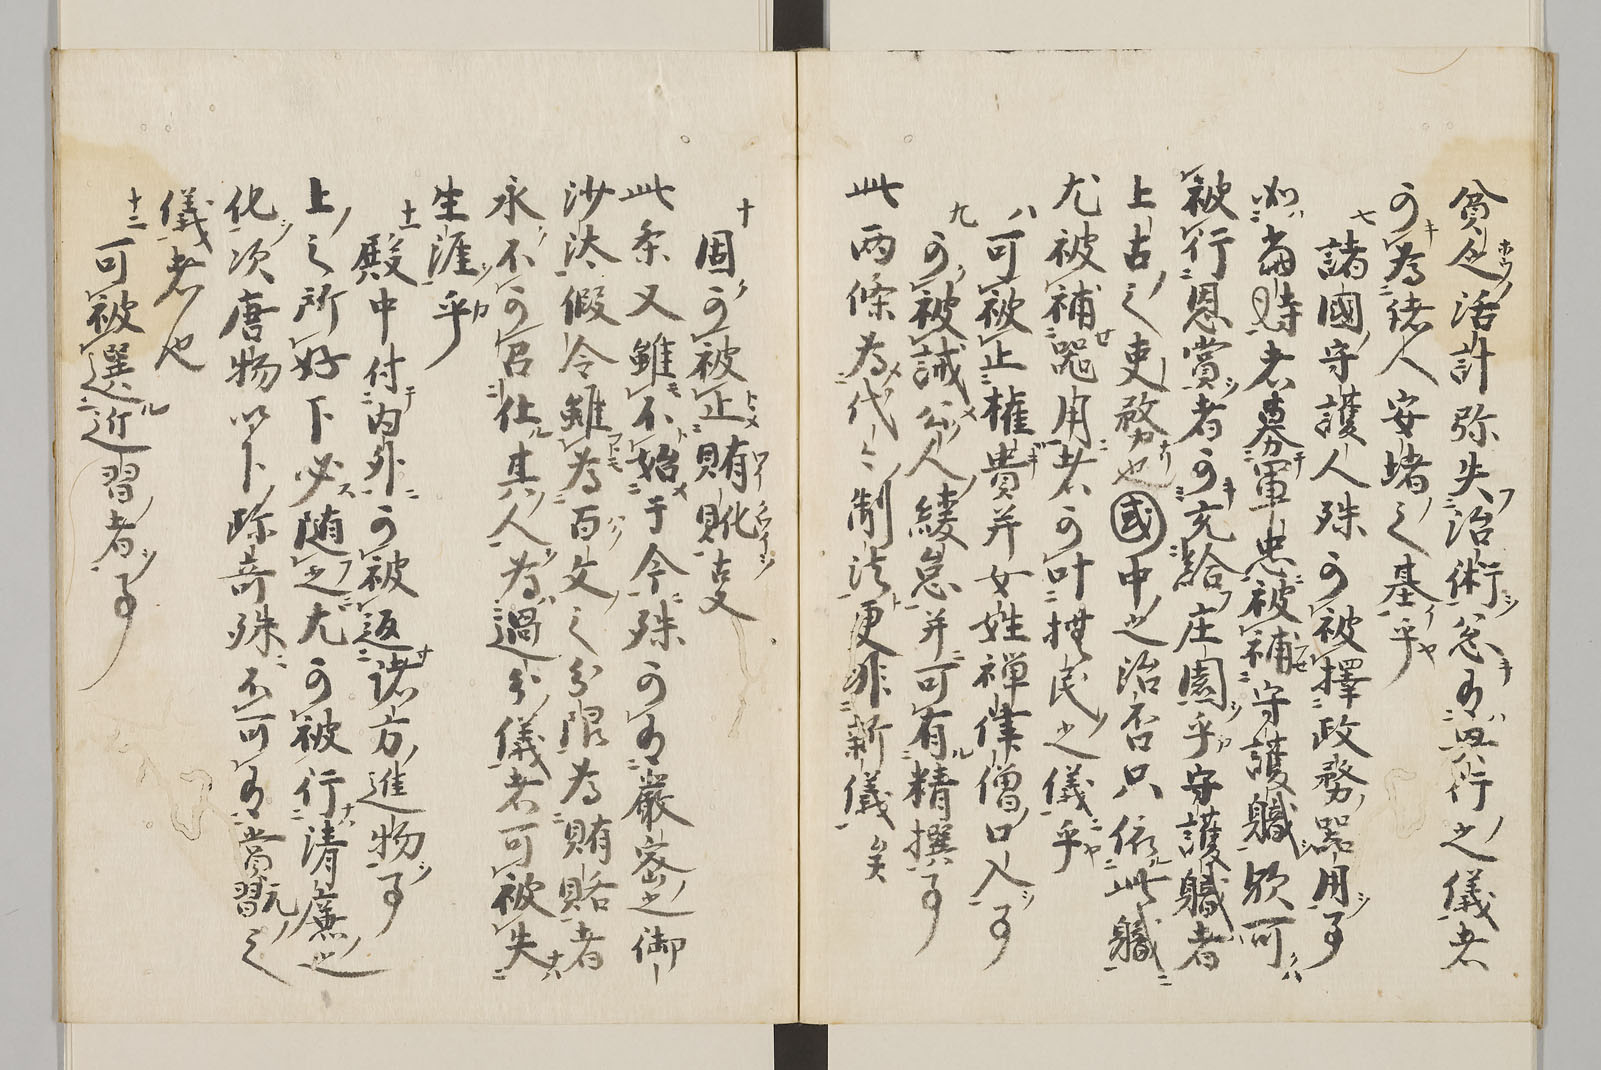 貧乏活計弥失治術急有興行之儀者
可為諸人安堵之基乎
七 諸國守護人殊可被擇政務器用事
如當時者募軍忠被補守護職歟可
被行恩賞者可充給庄園乎守護職者
上古之吏務也國中之治否只依此職
尤被補器用者可叶撫民之儀乎
八 可被止權貴并女姓禅律僧口入事
九 可被誡公人緩怠并可有精撰事
此両條為代々制法更非新儀矣
十 固可被止賄貨叓
此条又雖不始于今殊可有嚴密之御
沙汰假令雖為百文之分限為賄賂者
永不可召仕其人為過分儀者可被失
生涯乎
十一 殿中付内外可被返諸方進物事
上之所好下必随之尤可被行清廉之
化次唐物以下珎奇殊不可有賞翫之
儀者也
十二 可被選近習者事